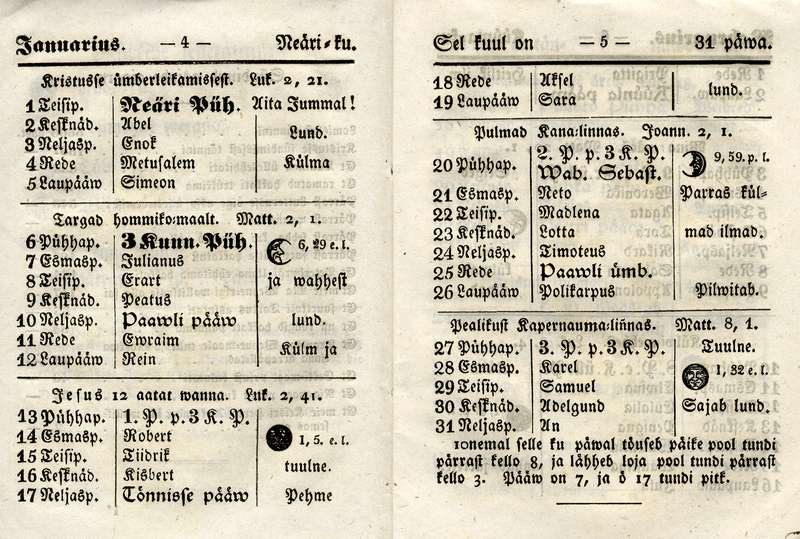 Januarius. — 4 — Neäri-ku.
Kristusse ümberleikamissest. Luk. 2, 21.
1 Teisip. Neäri Püh. Aita Jummal!
2 Kesknäd. Abel
Lund.
3 Neljasp. Enok
4 Rede Metusalem Külma
5 Laupääw Simeon
Targad hommiko:maalt. Matt. 2, 1.
6 Pühhap. 3 Kunn. Püh. 6, 29 e. l.
7 Esmasp. Julianus
8 Teisip. Erart ja wahhest
9 Kesknäd. Peatus
10 Neljasp. Paawli pääw lund.
11 Rede Ewraim
Külm ja
12 Laupääw Rein
Jesus 12 aatat wanna. Luk. 2, 41.
13 Pühhap. 1. P. p. 3 K. P.
14 Esmasp. Robert 1, 5. e. l.
15 Teisip. Tiidrik
tuulne.
16 Kesknäd. Kisbert
17 Neljasp. Tönnisse pääw Pehme
Sel kuul on — 5 — 31 päwa.
18 Rede Aksel
lund.
19 Laupääw Sara
Pulmad Kana:linnas. Joann. 2, 1.
20 Pühhap. 2. P. p. 3 K. P. 9, 59. p. l.
Wab. Sebast.
21 Esmasp. Neto Parras kül-
22 Teisip. Madlena
23 Kesknäd. Lotta mad ilmad.
24 Neljasp. Timoteus
25 Rede Paawli ümb.
26 Laupääw Polikarpus Pilwitab.
Pealikust Kapernauma:liñnas. Matt. 8, 1.
27 Pühhap. 3. P. p. 3 K. P. Tuulne.
28 Esmasp. Karel 1, 32 e. l.
29 Teisip. Samuel
30 Kesknäd. Adelgund Sajab lund.
31 Neljasp. An
10nemal selle ku päwal töuseb päike pool tundi
pärrast kello 8, ja lähheb loja pool tundi pärrast
kello 3. Pääw on 7, ja ö 17 tundi pitk.